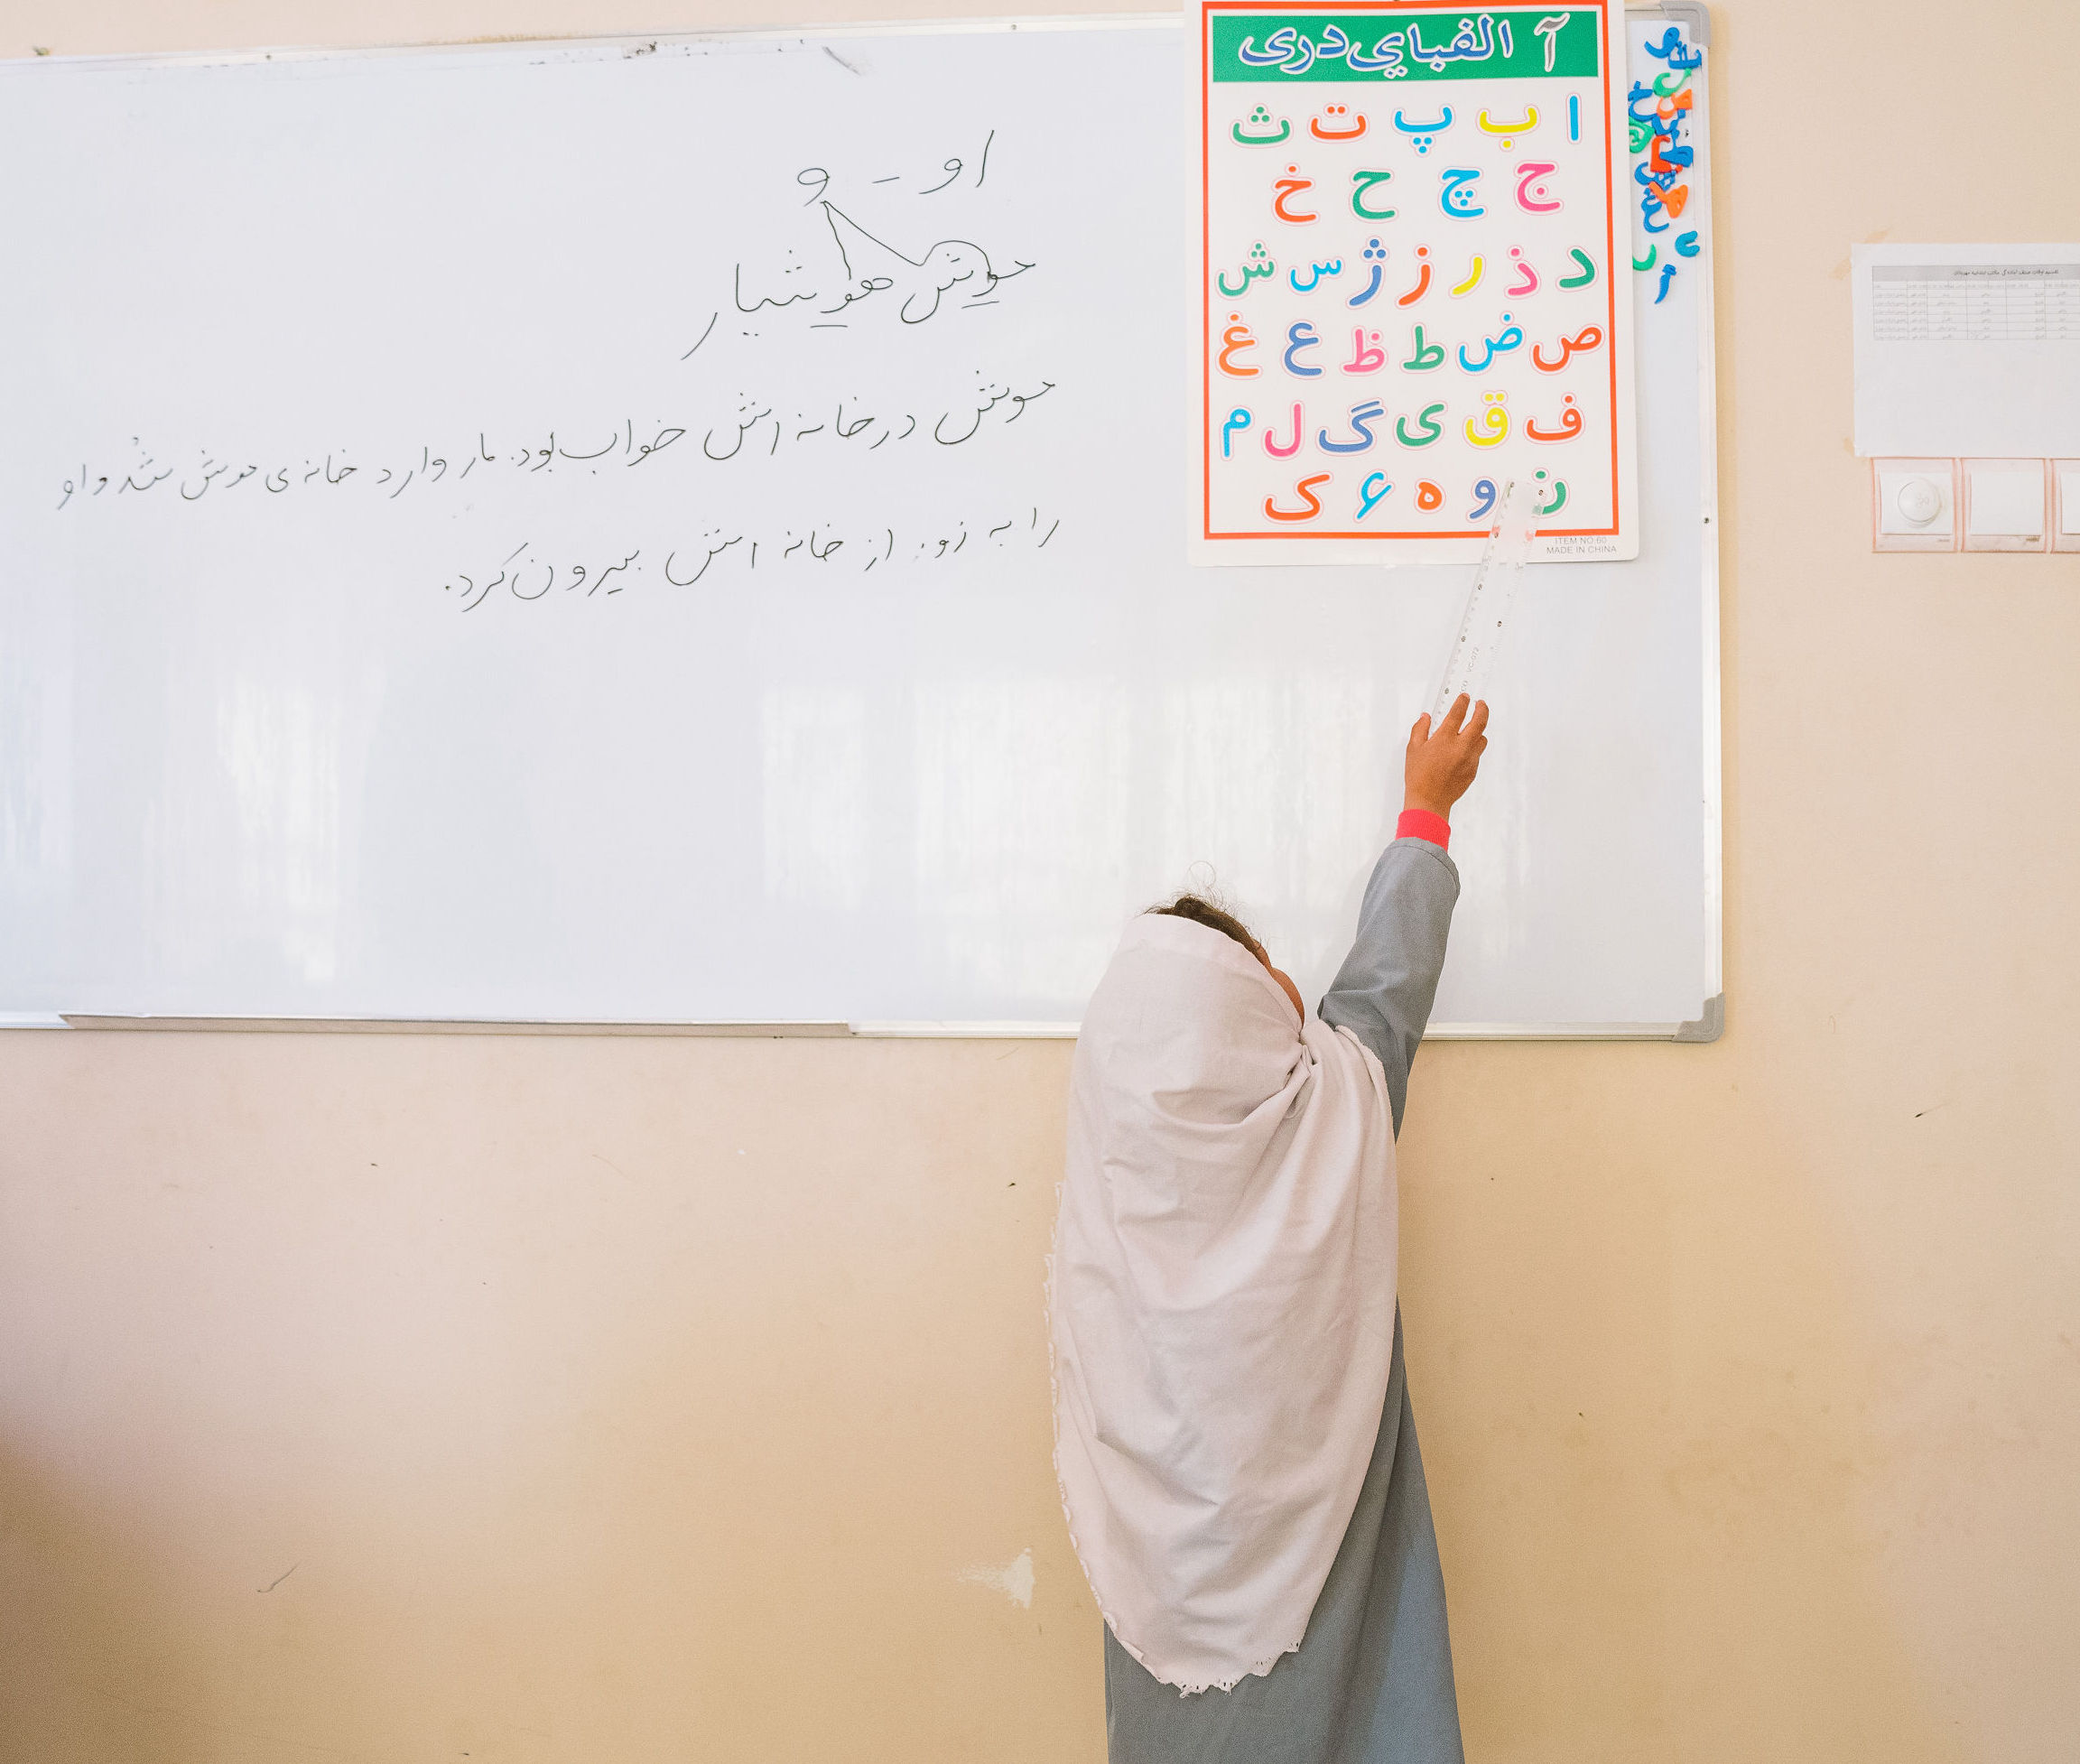 او - و
موش هوشیار
موش در خانه اش خواب بود. مار وارد خانه ی موش شُد و او
را به زور از خانه اش بیرون کرد.
آ الفبای دری
ا ب پ ت ث
ج چ ح خ
د ذ ر ز ژ س ش
ص ض ط ظ ع غ
ف ق ی گ ل م
ن و ه ء ک
ITEM NO:60
MADE IN CHINA